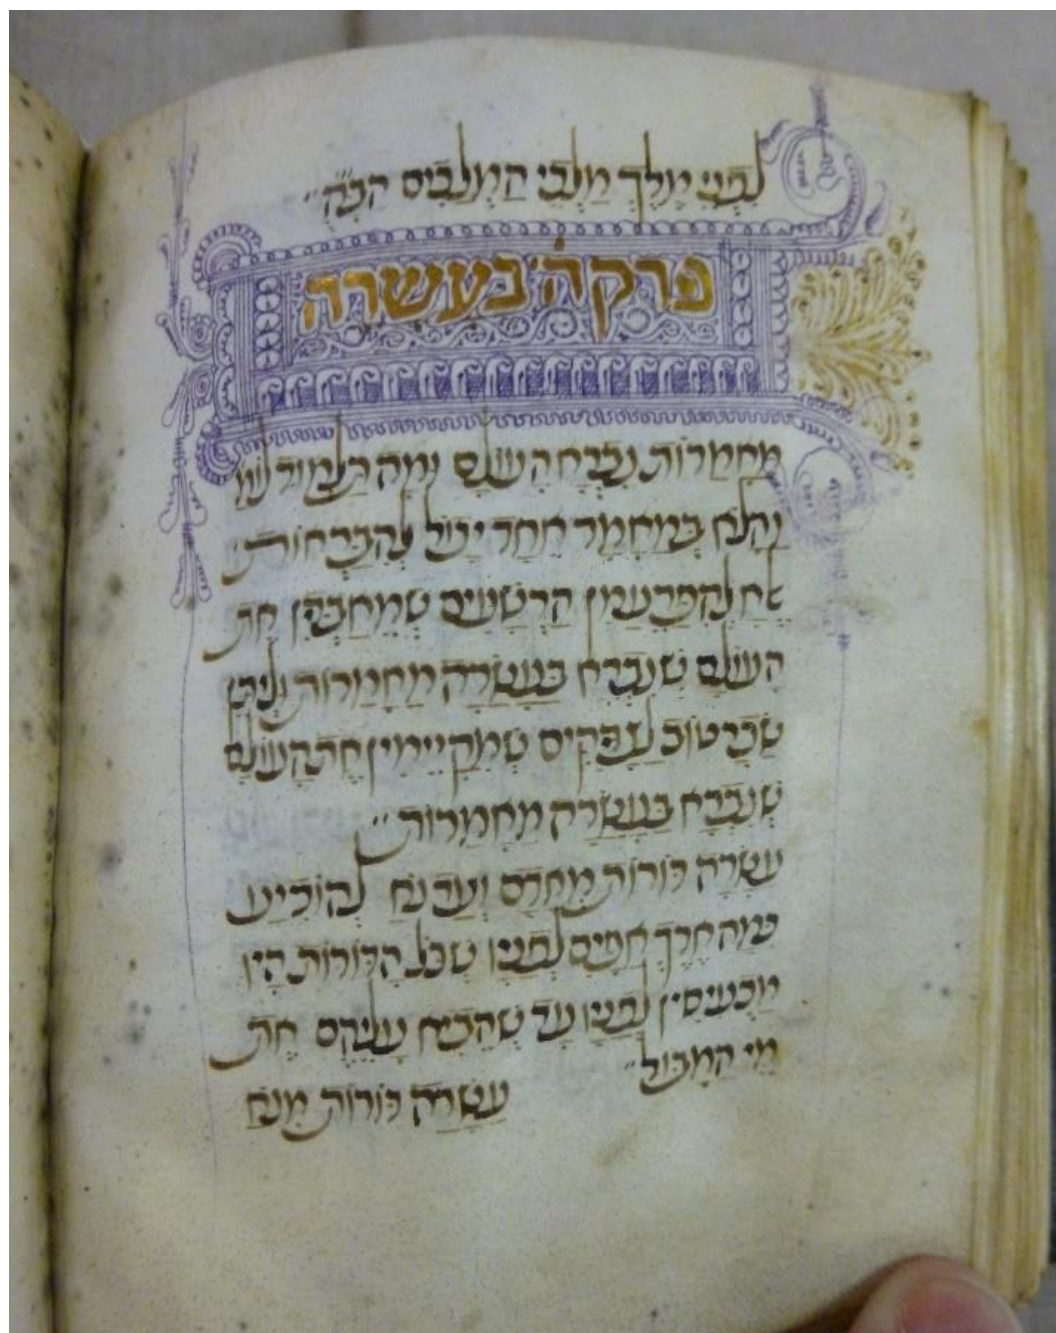 לפני מלך מלכי המלכים הב״ה
פרק ה׳ בעשרה
מאמרות נברא העולם ומה תלמוד לומ
והלא במאמר אחד יכול להבראות
אלא להפרע מן הרשעים שמאבדין את
העולם שנברא בעשרה מאמרות וליתן
שכר טוב לצדיקים שמקיימין את העולם
שנברא בעשרה מאמרות״
עשרה דורות מאדם ועד נח להודיע
כמה ארך אפים לפניו שכל הדורות היו
מכעיסין לפניו עד שהביא עליהם את
מי המבול״
עשרה דורות מנח